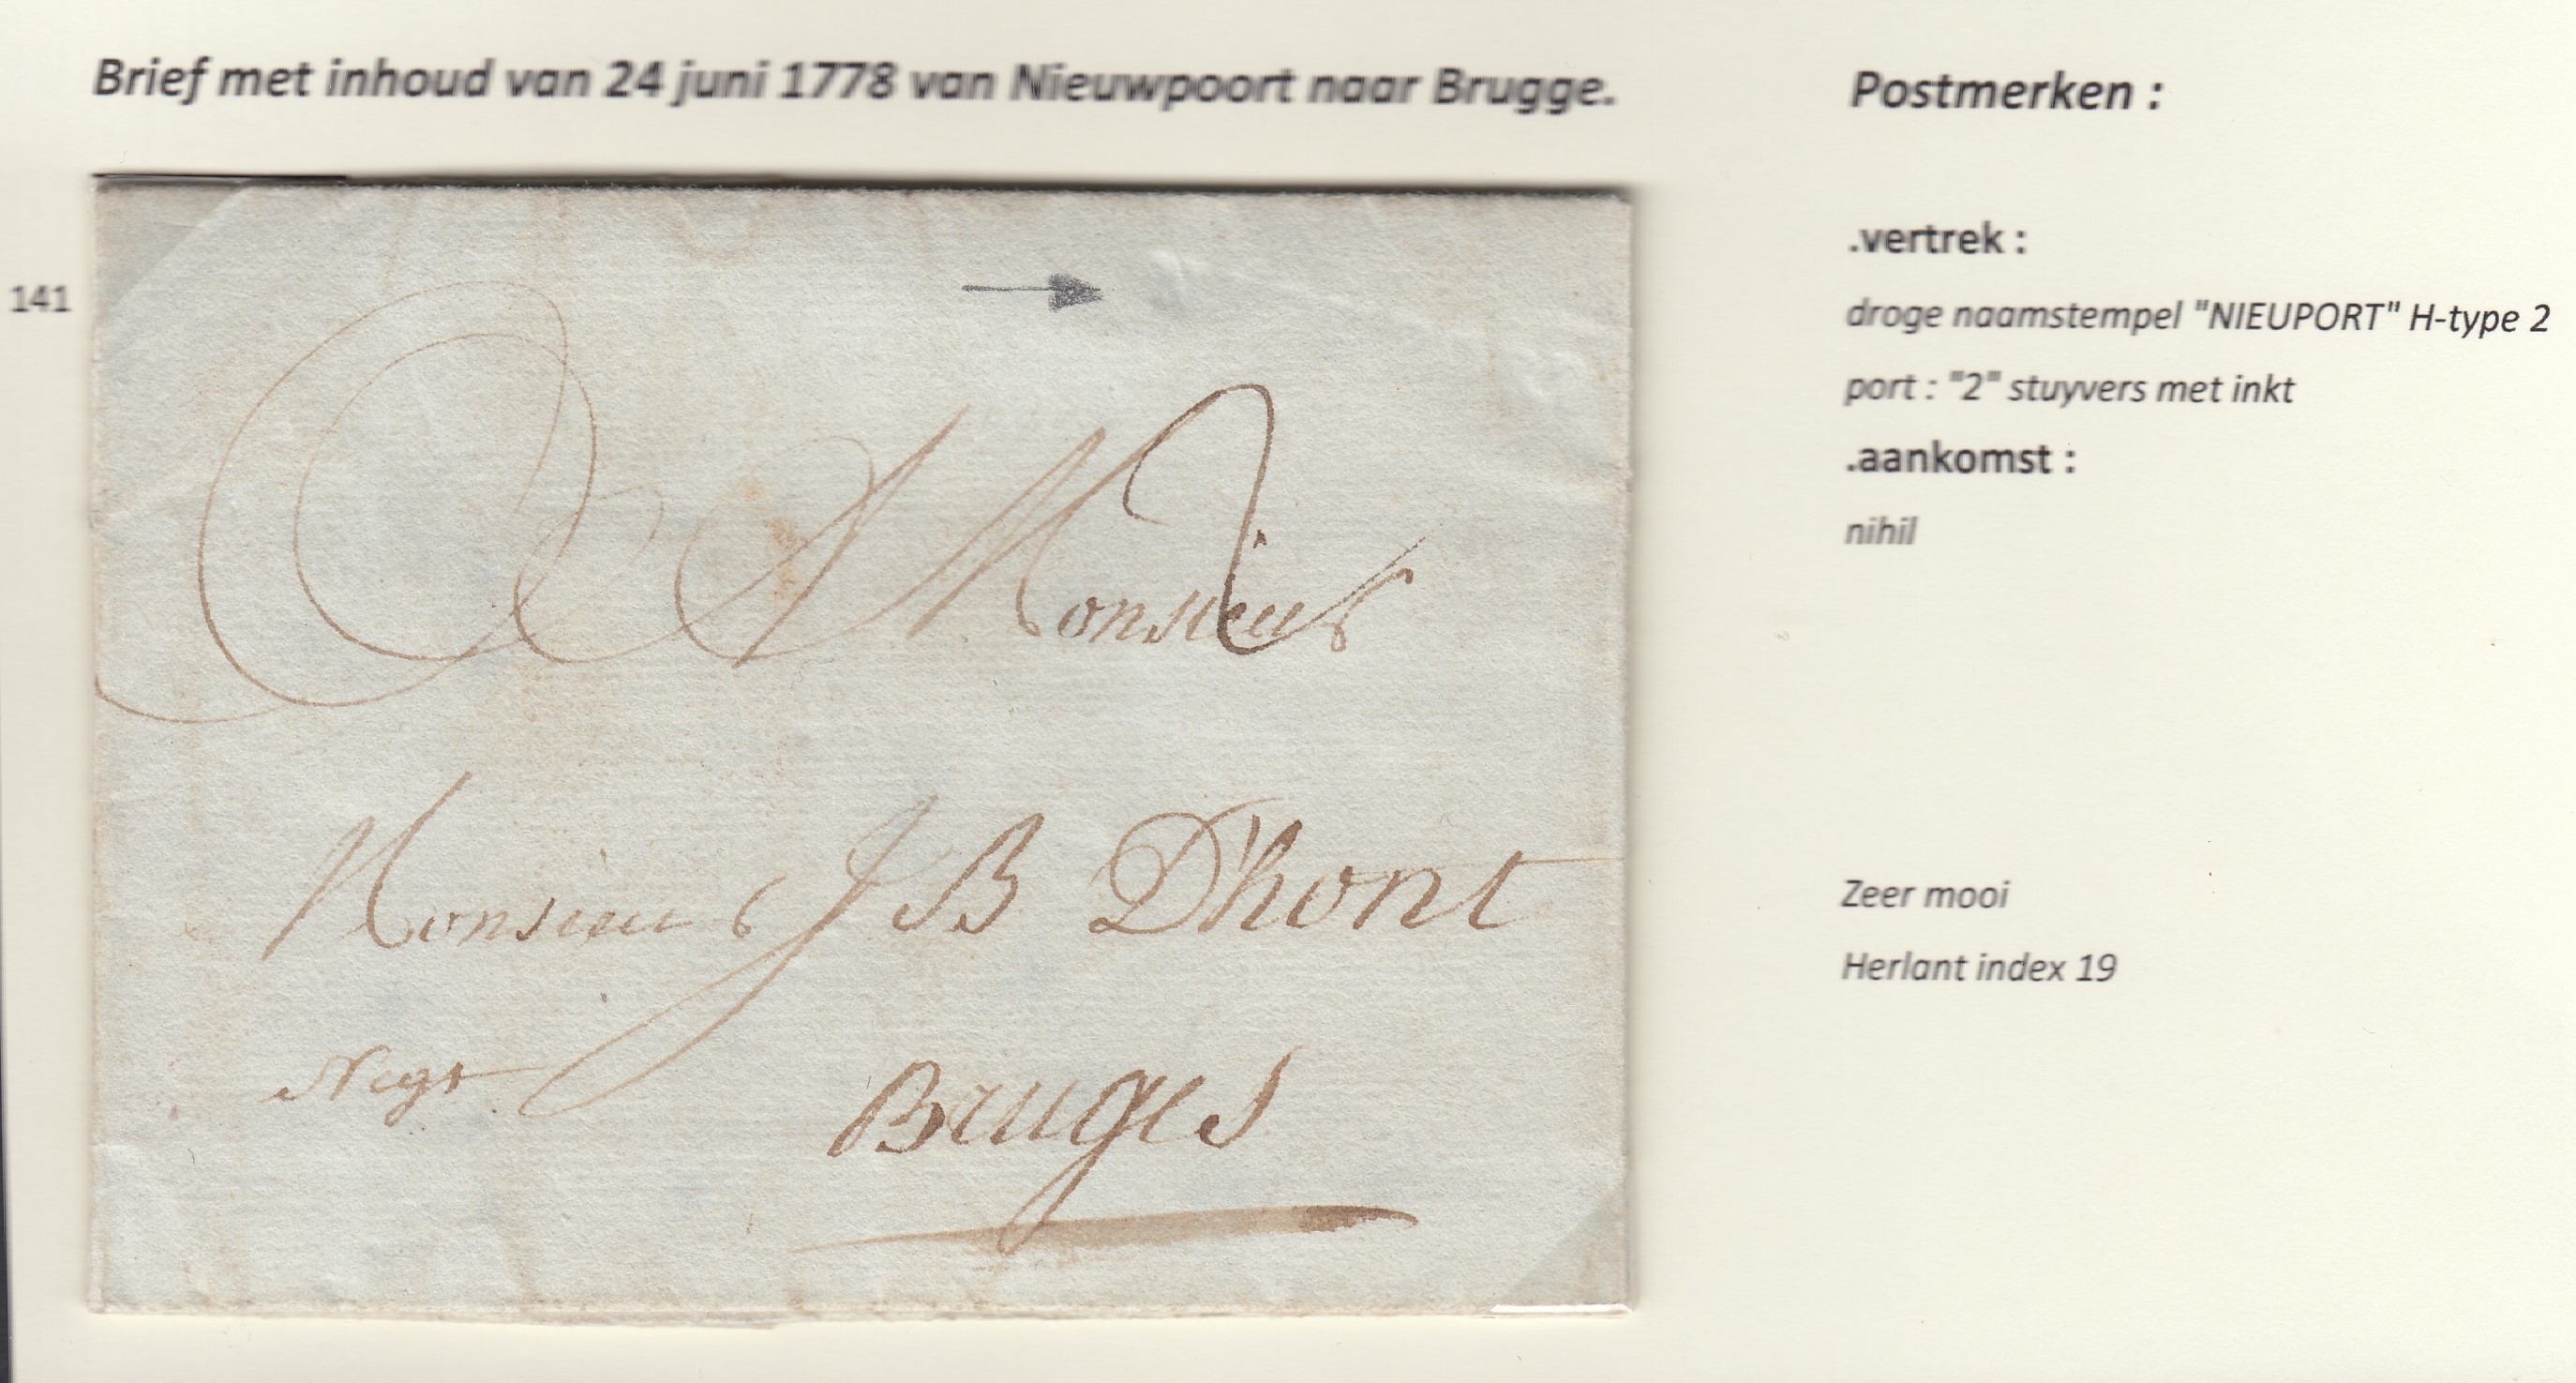 Brief met inhoud van 24 juni 1778 van Nieuwpoort naar Brugge.
Postmerken :
.vertrek :
141
droge naamstempel "NIEUPORT" H-type 2
port : "2" stuyvers met inkt
.aankomst :
nihil
2
A Monsieur
Monsieur J B D'hont
Negt
Bruges
Zeer mooi
Herlant index 19